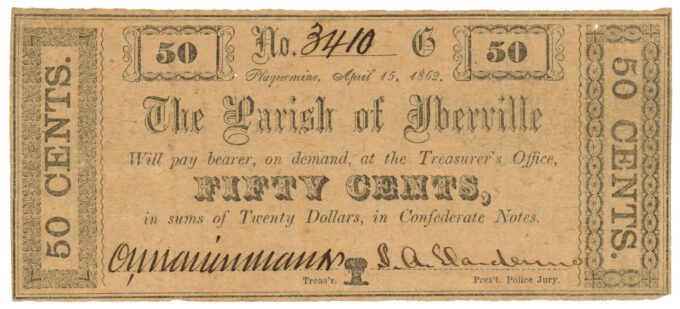 50 No. 3410 G 50
Plaquemine, April 15, 1862.
The Parish of Iberville
Will pay bearer, on demand, at the Treasurer's Office,
FIFTY CENTS,
in sums of Twenty Dollars, in Confederate Notes.
Treas'r. Pres't. Police Jury.
50 CENTS.
50 CENTS.